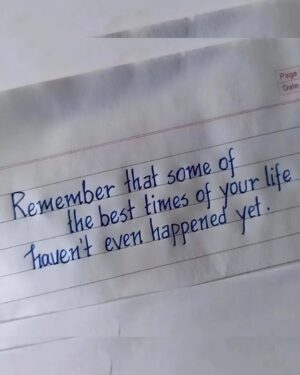 Page
Date
Remember that some of
the best times of your life
haven't even happened yet.